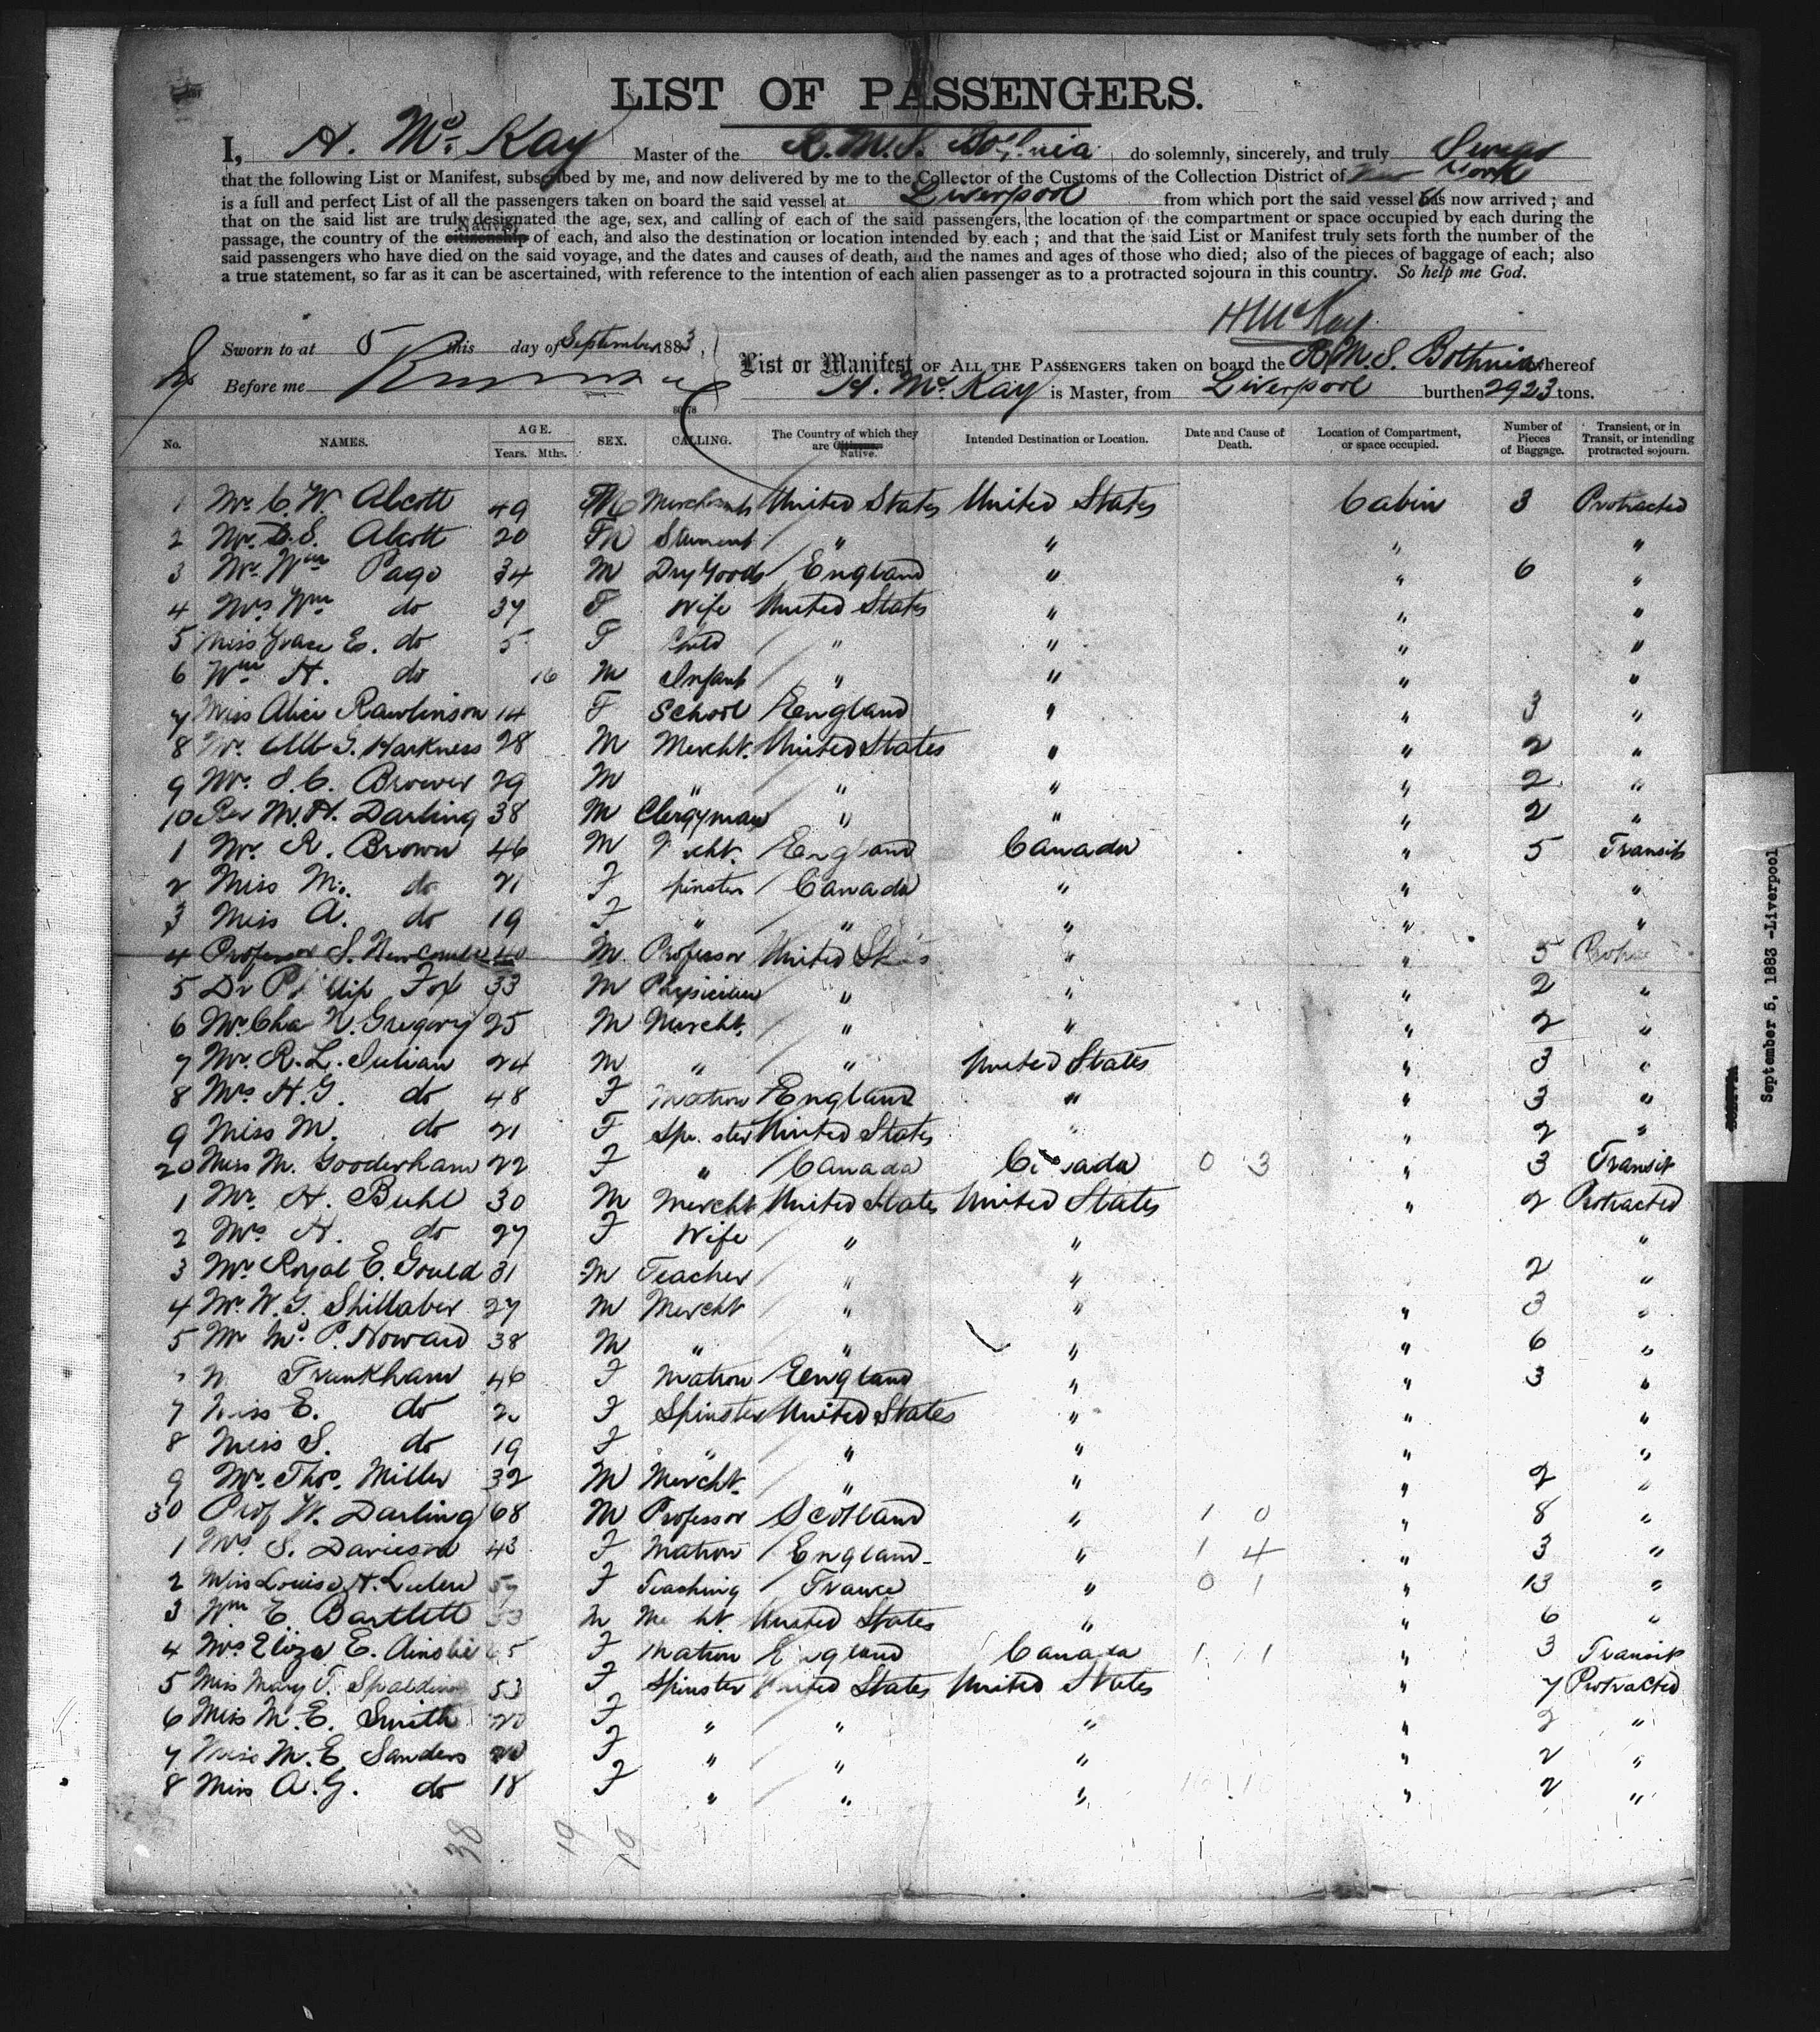 LIST OF PASSENGERS.
I, H. McKay Master of the R.M.S. Bothnia do solemnly, sincerely, and truly Swear
that the following List or Manifest, subscribed by me, and now delivered by me to the Collector of the Customs of the Collection District of New York
is a full and perfect List of all the passengers taken on board the said vessel at Liverpool from which port the said vessel has now arrived; and
that on the said list are truly designated the age, sex, and calling of each of the said passengers, the location of the compartment or space occupied by each during the
Native
passage, the country of the citizenship of each, and also the destination or location intended by each; and that the said List or Manifest truly sets forth the number of the
said passengers who have died on the said voyage, and the dates and causes of death, and the names and ages of those who died; also of the pieces of baggage of each; also
a true statement, so far as it can be ascertained, with reference to the intention of each alien passenger as to a protracted sojourn in this country. So help me God.
H McKay
Sworn to at 5 this day of September 1883,
Before me
List or Manifest OF ALL THE PASSENGERS taken on board the R.M.S. Bothnia whereof
H. McKay is Master, from Liverpool burthen 2923 tons.
No. NAMES. AGE. Years. Mths. SEX. CALLING. The Country of which they are Citizens. Native. Intended Destination or Location. Date and Cause of Death. Location of Compartment, or space occupied. Number of Pieces of Baggage. Transient, or in Transit, or intending protracted sojourn.
1 Mr. C. W. Alcott 49 M Merchant United States United States Cabin 3 Protracted
2 Mr. S. Alcott 20 M " " " "
3 Mr. Wm Page 34 M Dry Goods England " " 6 "
4 Mrs Wm do 37 F Wife United States " " "
5 Miss Grace E. do 5 F Child " " " "
6 Wm H. do 16 M Infant " " " "
7 Miss Alice Rawlinson 14 F School England " " 3 "
8 Mr. G. Harkness 28 M Mercht. United States " " 2 "
9 Mr. S. C. Brower 29 M " " " " 2 "
10 Rev M. H. Darling 38 M Clergyman " " " 2 "
1 Mr. R. Brown 46 M Mercht. England Canada " 5 Transit
2 Miss M. do 21 F Spinster Canada " " "
3 Miss A. do 19 F " " " " "
4 Professor S. Newcombe 40 M Professor United States " " 5
5 Dr Phillip Fox 33 M Physician " " " 2 "
6 Mr. Chas N. Gregory 25 M Mercht. " " " 2 "
7 Mr. R. L. Julian 24 M " " United States " 3 "
8 Mrs H. G. do 48 F Matron England " " 3 "
9 Miss M. do 21 F Spinster United States " " 2 "
20 Miss M. Gooderham 22 F " Canada Canada 0 3 " 3 Transit
1 Mr. H. Buhl 30 M Mercht United States United States " 2 Protracted
2 Mrs H. do 27 F Wife " " "
3 Mr. Royal E. Gould 31 M Teacher " " 2 "
4 Mr. W. G. Shillaber 27 M Mercht " " " 3 "
5 Mr Mc P. Howard 38 M " " " " 6 "
Frankham 46 F Matron England " " 3 "
7 Miss E. do F Spinster United States " " "
8 Miss S. do 19 F " " " " "
9 Mr. Thos. Miller 32 M Mercht. " " " 2 "
30 Prof W. Darling 68 M Professor Scotland " 1 0 " 8 "
1 Mrs S. Davieson 43 F Matron England " 1 4 " 3 "
2 Miss Louise H. F Teaching France " 0 1 " 13 "
3 Wm E. Bartlett 53 M Mercht. United States " " 6 "
4 Mrs Eliza E. Ainslie 65 F Matron England Canada 1 11 " 3 Transit
5 Miss Mary T. Spalding 53 F Spinster United States United States " 7 Protracted
6 Miss M. E. Smith 20 F " " " " 2 "
7 Miss M. E. Sanders F " " " " 2 "
8 Miss A. G. do 18 F " " " " 2 "
38 19 19
September 5, 1883 -Liverpool